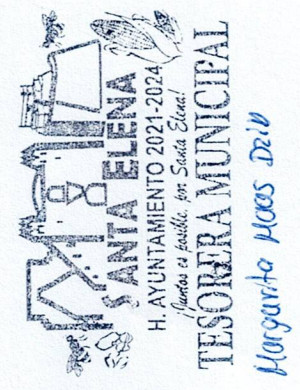 SANTA ELENA
H. AYUNTAMIENTO 2021-2024
¡Juntos es posible, por Santa Elena!
TESORERA MUNICIPAL
Margarita Maas Dzib